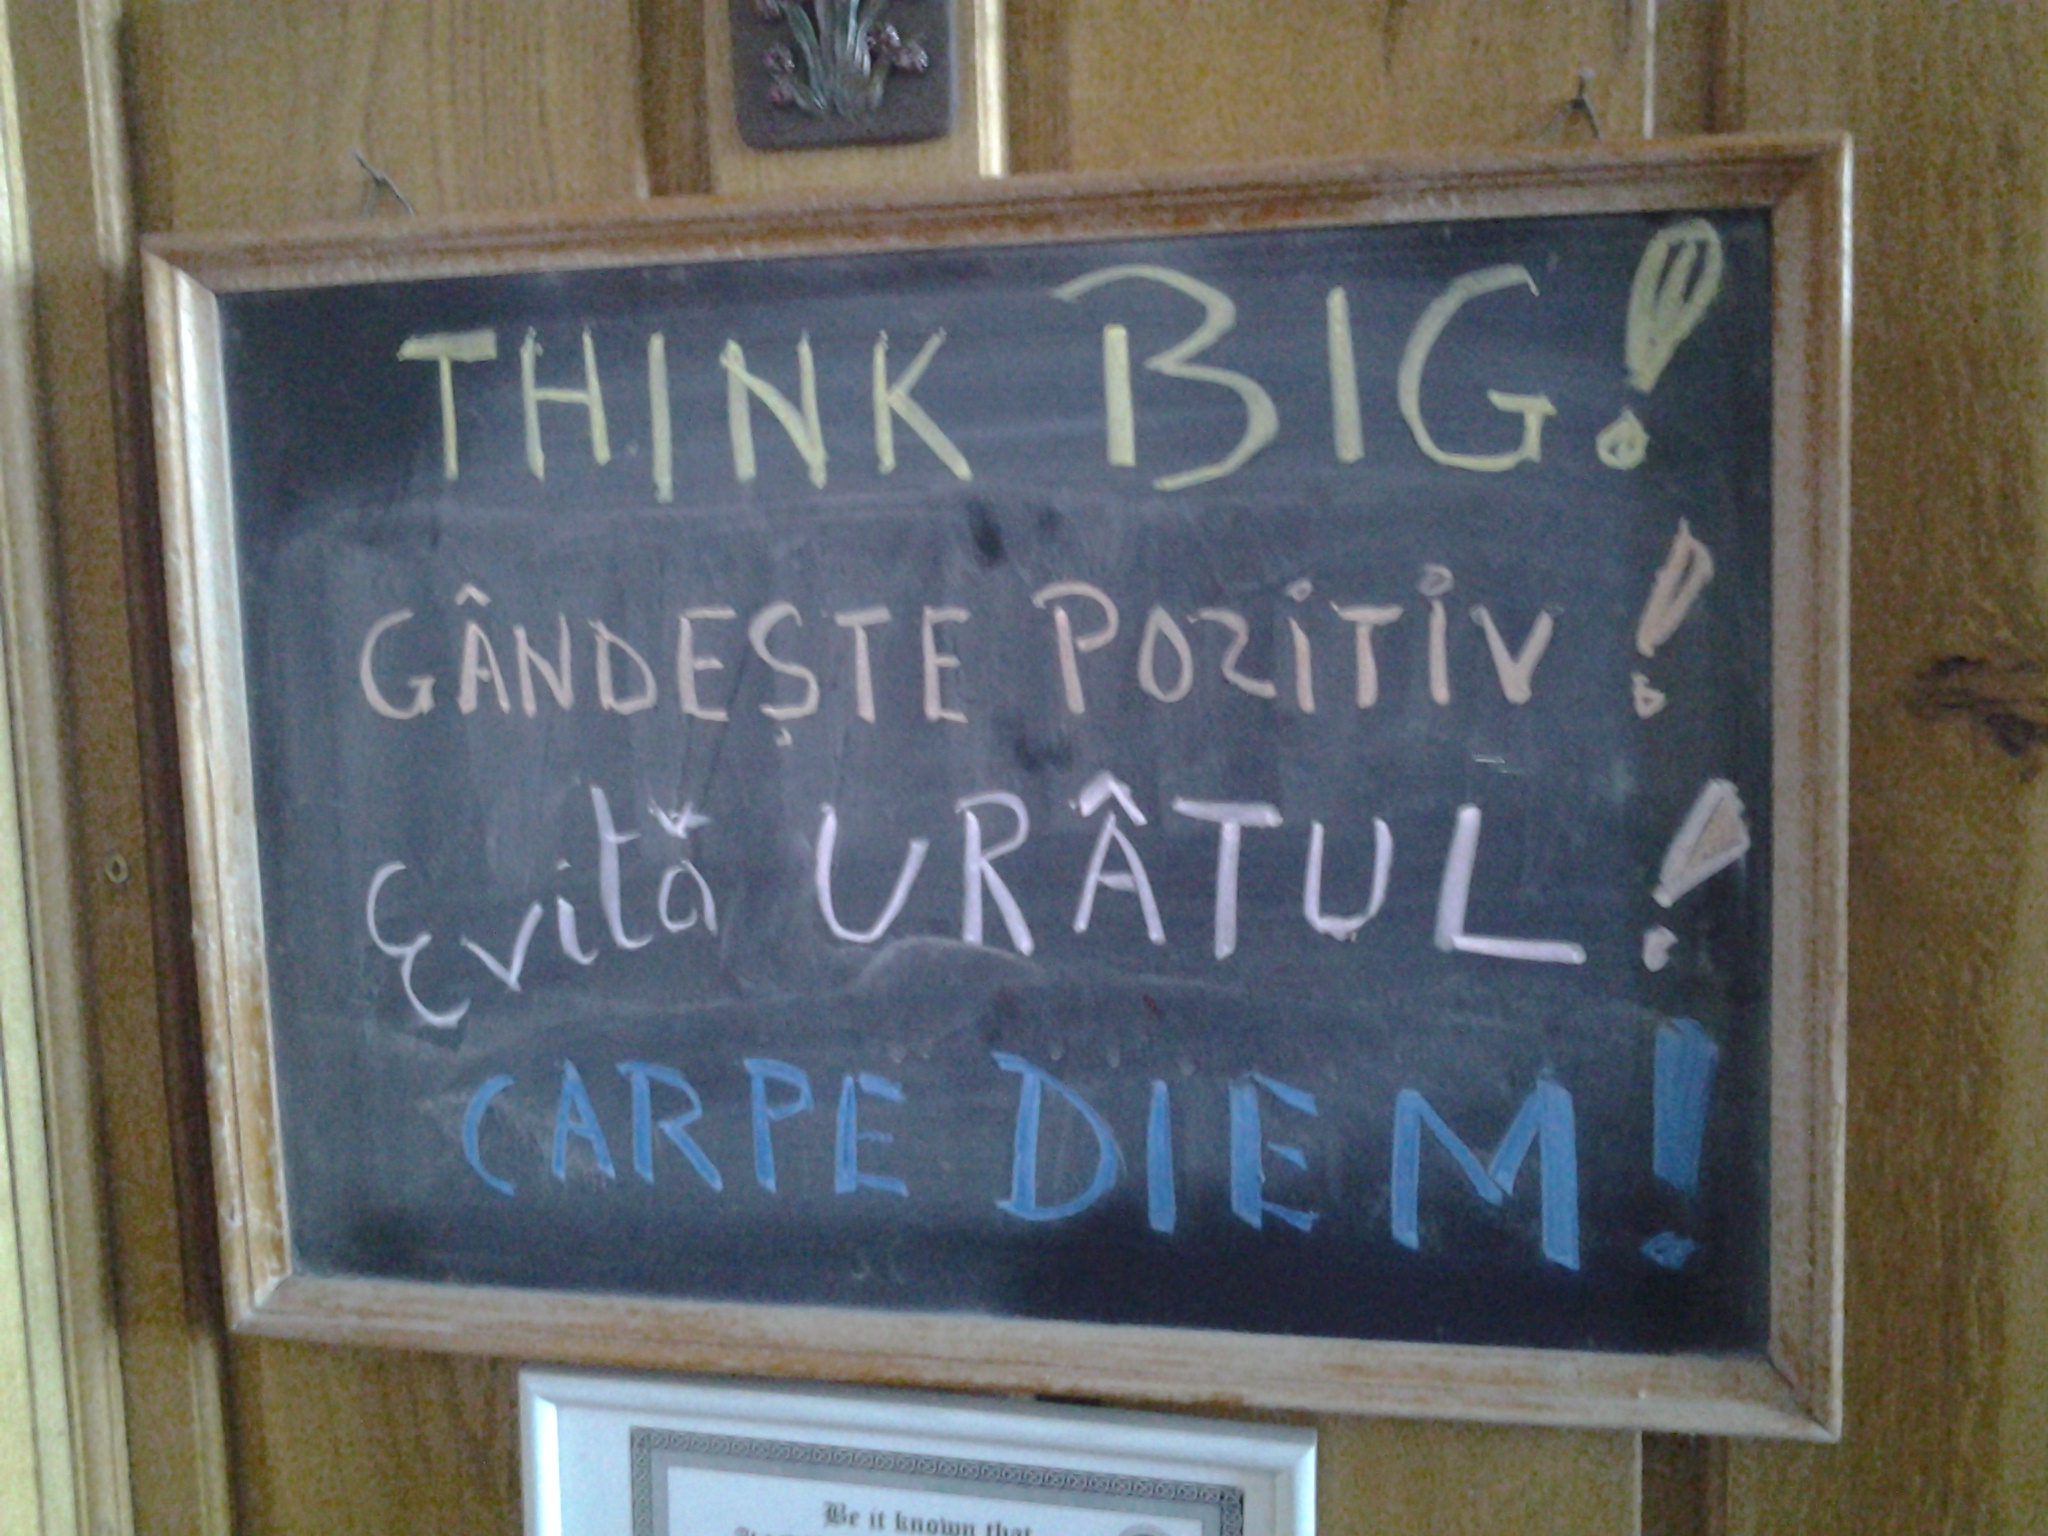 THINK BIG!
GÂNDEȘTE POZITIV!
Evită URÂTUL!
CARPE DIEM!
Be it known that